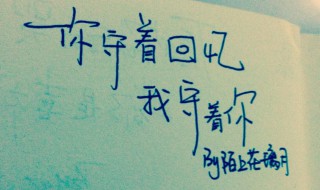 你守着回忆
我守着你
By陌上花月